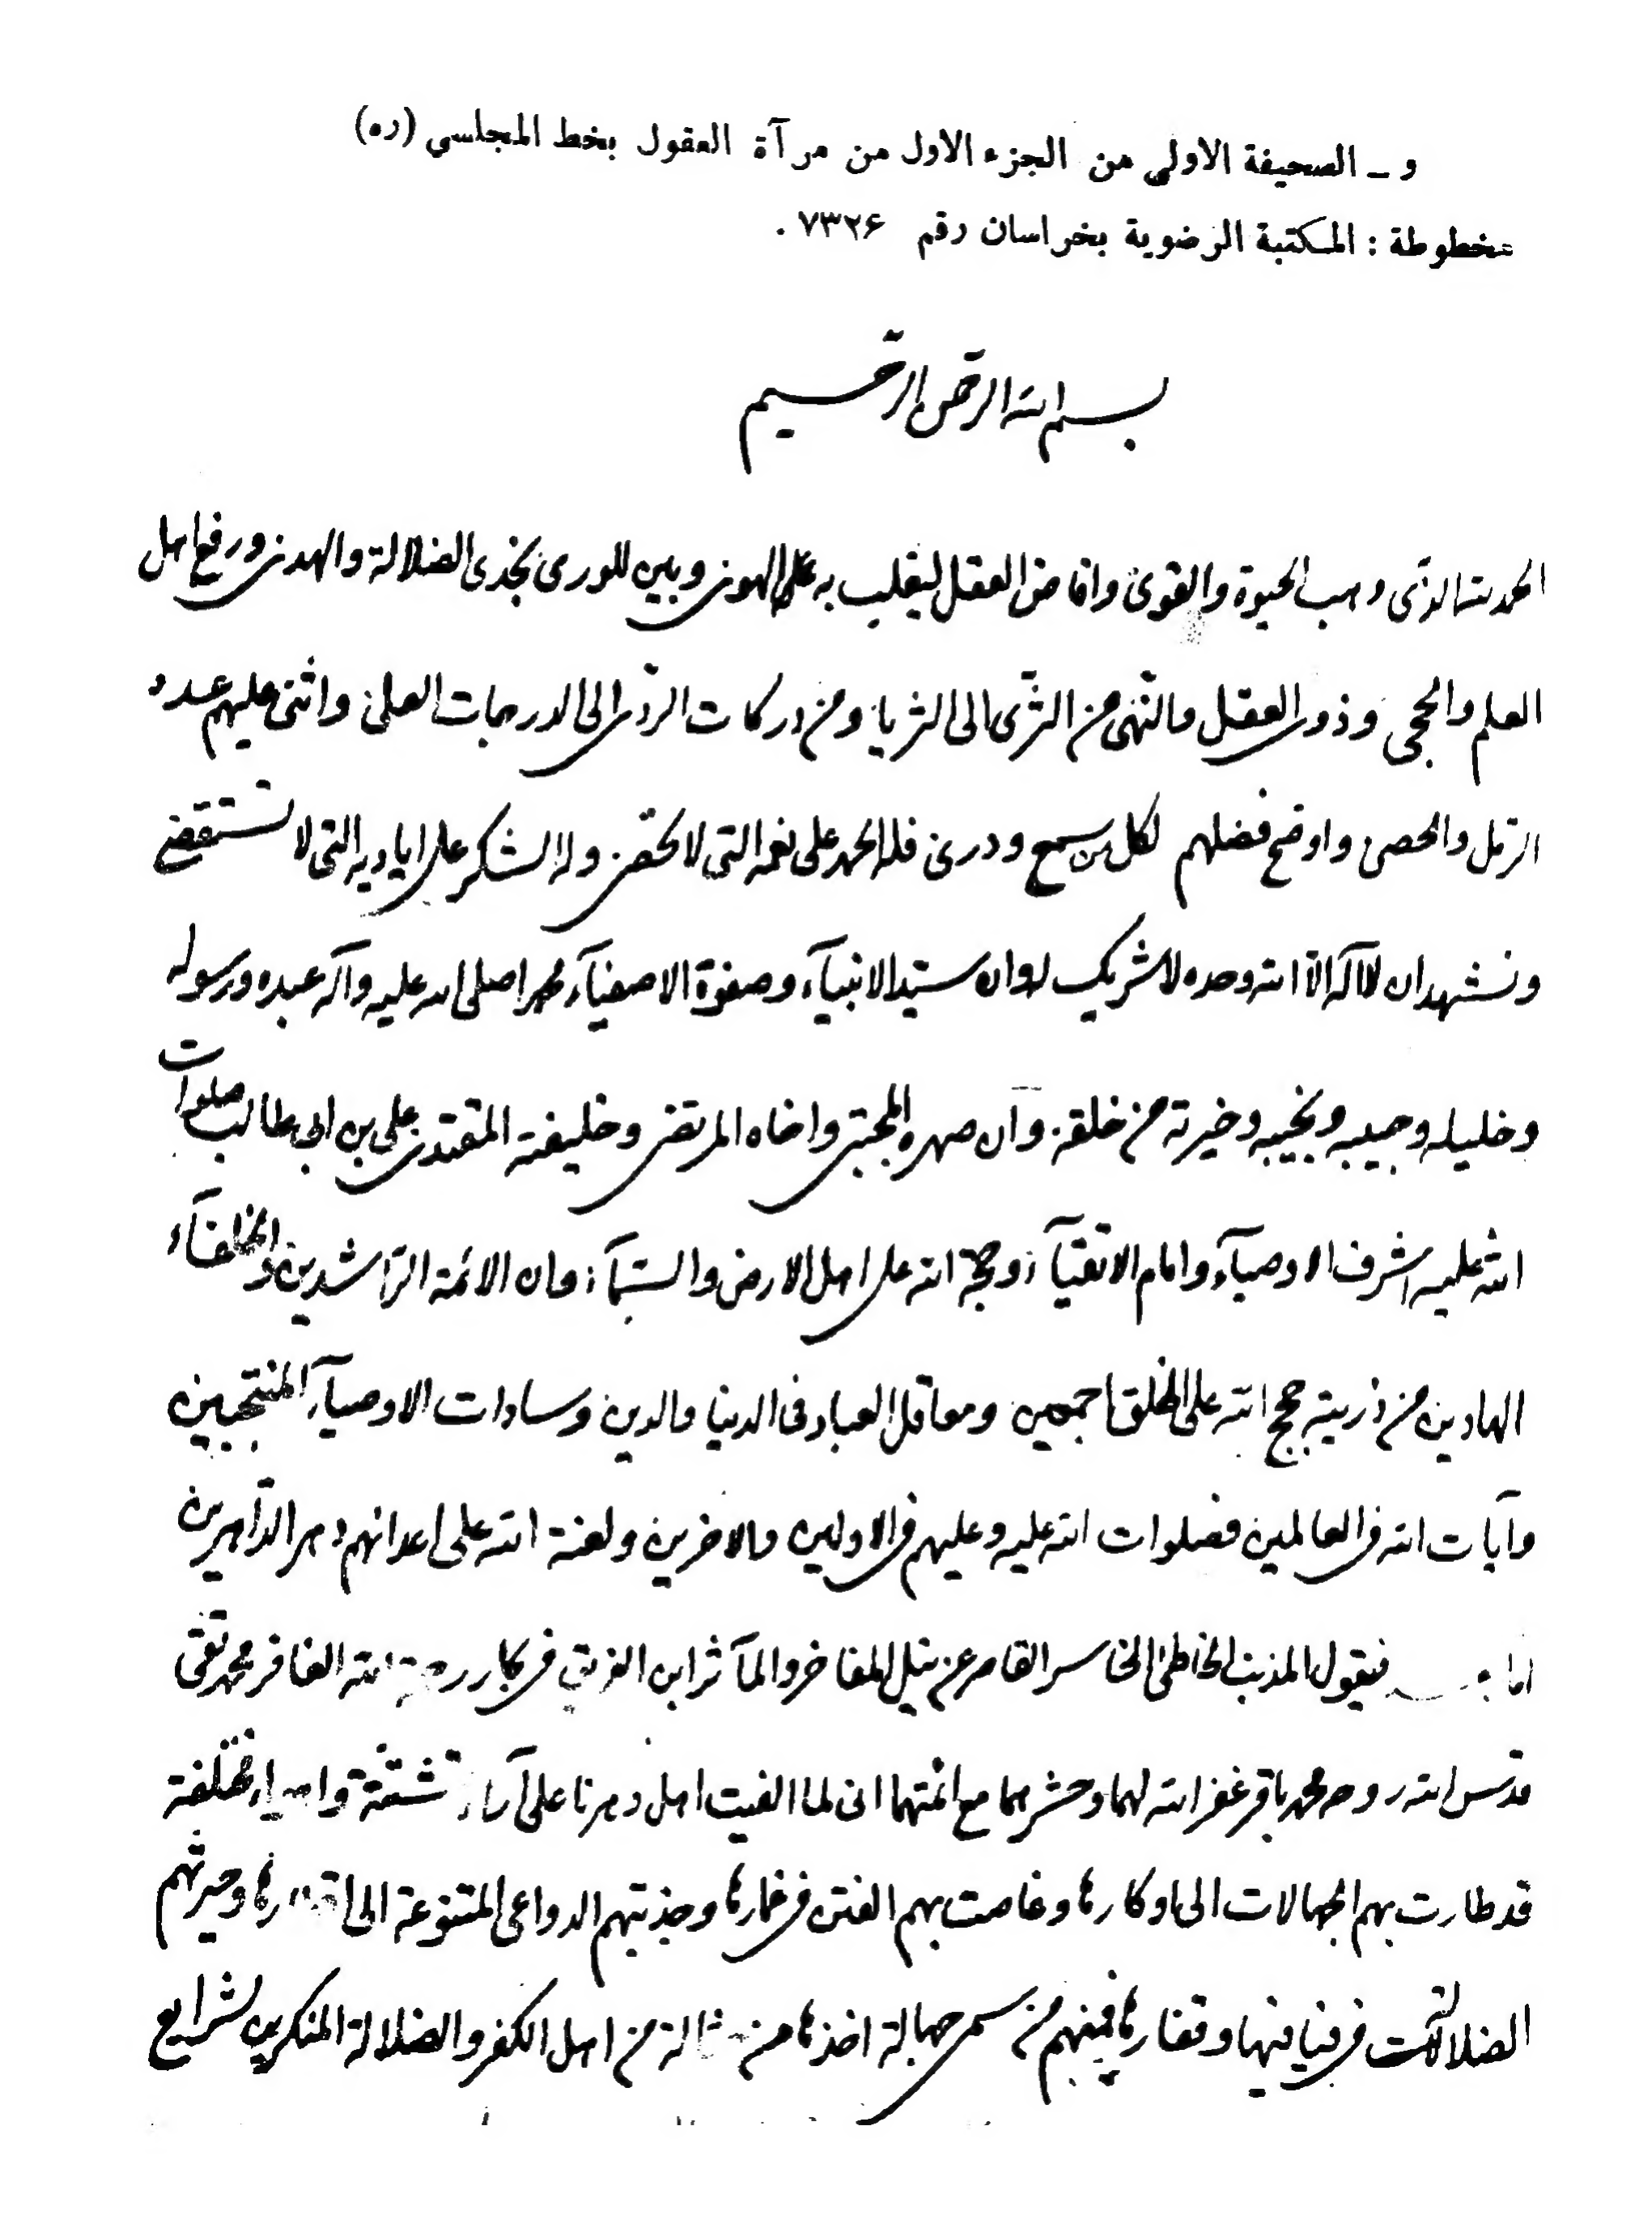 و ـ الصحيفة الاولى من الجزء الاول من مرآة العقول بخط المجلسي (ره)
مخطوطة : المكتبة الرضوية بخراسان رقم ۷۳۲۶ .
بسم الله الرحمن الرحيم
الحمد لله الذى وهب الحيوة والقوى وافاض العقل ليغلب به على الهوى وبين للورى نجدى الضلالة والهدى ورفع اهل
العلم والحجى وذوى العقل والنهى من الثرى الى الثريا ومن دركات الردى الى الدرجات العلى واثنى عليهم عدد
الرمل والحصى واوضح فضلهم لكل من سمع ودرى فله الحمد على نعمه التى لا تحصى وله الشكر على اياديه التى لا تستقصى
ونشهد ان لا اله الا الله وحده لا شريك له وان سيد الانبيآء وصفوة الاصفيآء محمدا صلى الله عليه وآله عبده ورسوله
وخليله وحبيبه ونجيبه وخيرته من خلقه وان صهره المجتبى واخاه المرتضى وخليفته المقتدى على بن ابى طالب صلوات
الله عليه اشرف الاوصيآء وامام الاتقيآء وحجة الله على اهل الارض والسمآء وان الائمة الراشدين والخلفآء
الهادين من ذريته حجج الله على الخلق اجمعين ومعاقل العباد فى الدنيا والدين وسادات الاوصيآء المنتجبين
وآيات الله فى العالمين فصلوات الله عليه وعليهم فى الاولين والاخرين ولعنة الله على اعدائهم دهر الداهرين
اما فيقول المذنب الخاطئ الخاسر القاصر عن نيل المفاخر والمآثر ابن الغريق فى بحار رحمة الله الغافر محمد تقى
قدس الله روحه محمد باقر غفر الله لهما وحشرهما مع ائمتهما انى لما الفيت اهل دهرنا على آراء متشتتة واهواء مختلفة
قد طارت بهم الجهالات الى اوكارها وغاصت بهم الفتن فى غمارها وجذبتهم الدواعى المتنوعة الى وحيرتهم
الضلالات فى فيافيها وقفارها فمنهم من سمى جهالة اخذها من حثالة من اهل الكفر والضلالة المنكرين لشرايع